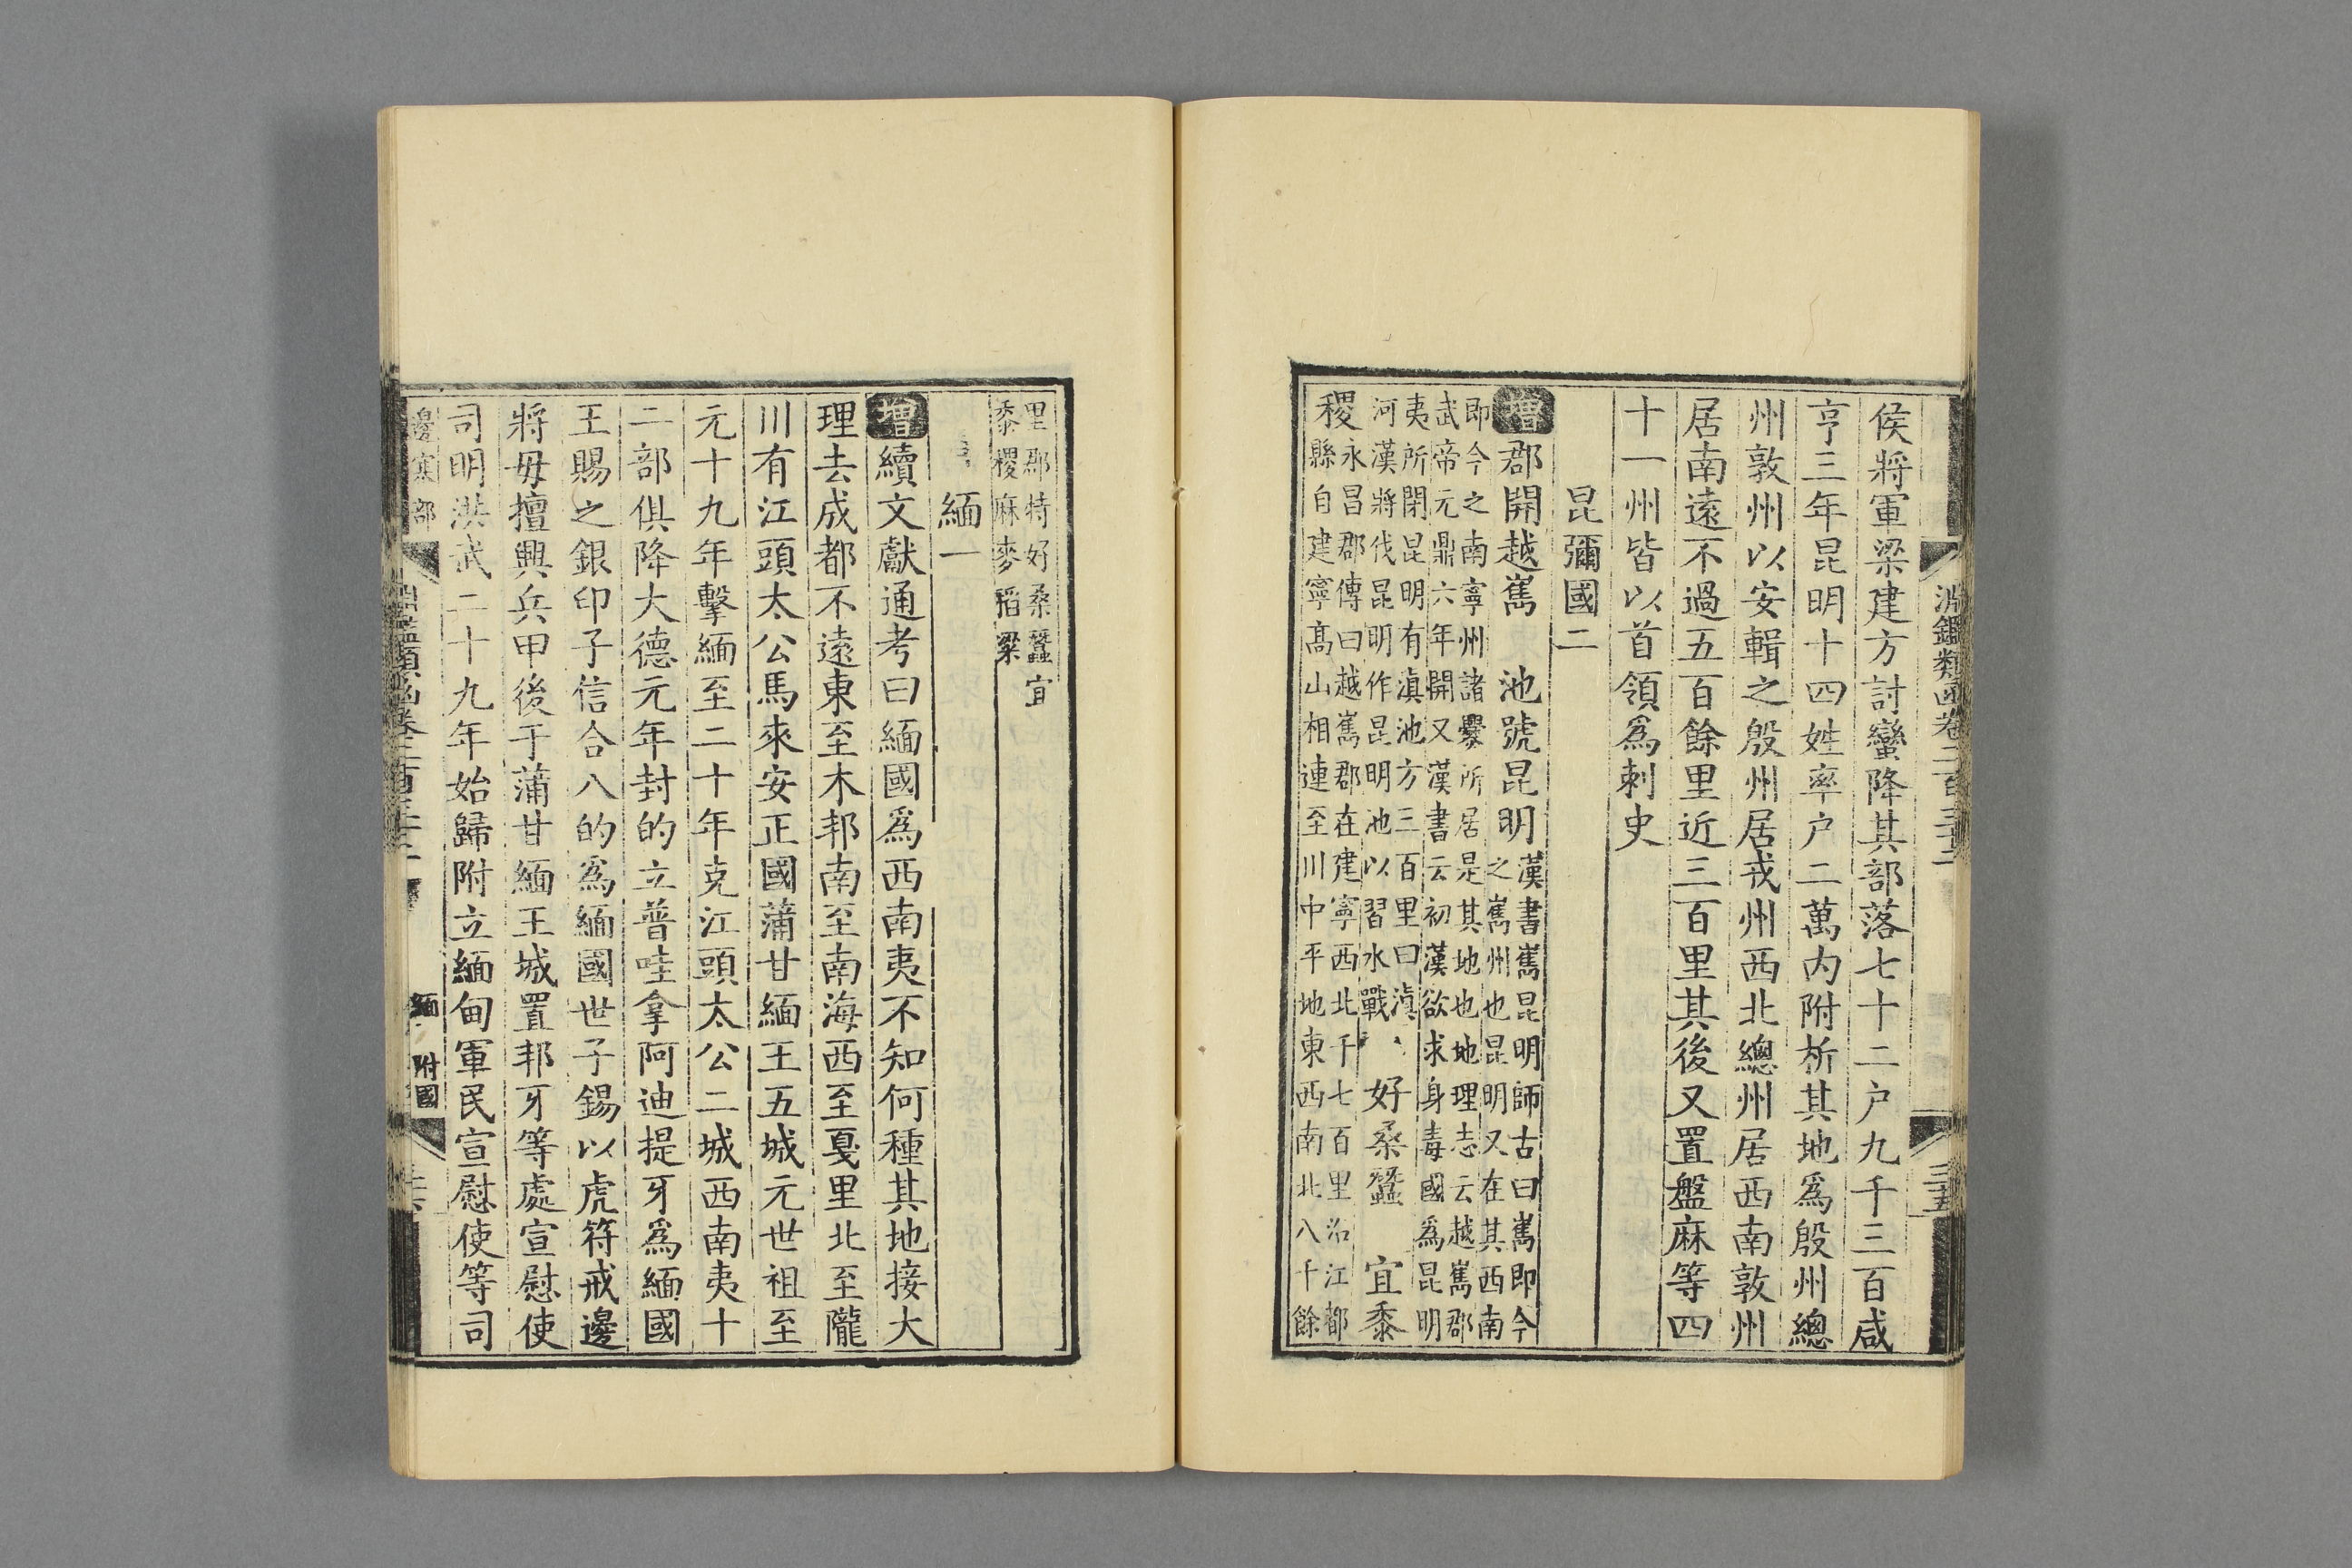 淵鑑類函卷二百三十二
三五
侯將軍梁建方討蠻降其部落七十二户九千三百咸
亨三年昆明十四姓率户二萬内附析其地爲殷州總
州敦州以安輯之殷州居戎州西北總州居西南敦州
居南遠不過五百餘里近三百里其後又置盤麻等四
十一州皆以首領爲刺史
昆彌國二
增郡開越嶲 池號昆明
漢書嶲昆明師古曰嶲即今
之嶲州也昆明又在其西南
即今之南寧州諸爨所居是其地也地理志云越嶲郡
武帝元鼎六年開又漢書云初漢欲求身毒國爲昆明
夷所閉昆明有滇池方三百里曰滇
河漢將伐昆明作昆明池以習水戰
好桑蠶 宜黍
稷
永昌郡傳曰越嶲郡在建寧西北千七百里治江都
縣自建寧髙山相連至川中平地東西南北八千餘
里郡特好桑蠶宜
黍稷麻麥稻粱
緬一
增續文獻通考曰緬國爲西南夷不知何種其地接大
理去成都不遠東至木邦南至南海西至戛里北至隴
川有江頭太公馬來安正國蒲甘緬王五城元世祖至
元十九年擊緬至二十年克江頭太公二城西南夷十
二部俱降大德元年封的立普哇拿阿迪提牙爲緬國
王賜之銀印子信合八的爲緬國世子錫以虎符戒邊
將毋擅興兵甲後于蒲甘緬王城置邦牙等處宣慰使
司明洪武二十九年始歸附立緬甸軍民宣慰使等司
邊塞部
緬 附國